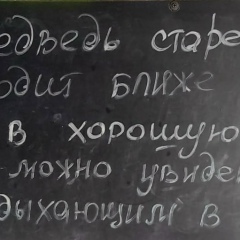 едведь старе
одит ближе
в хорошую
можно увиде
дыхающим в